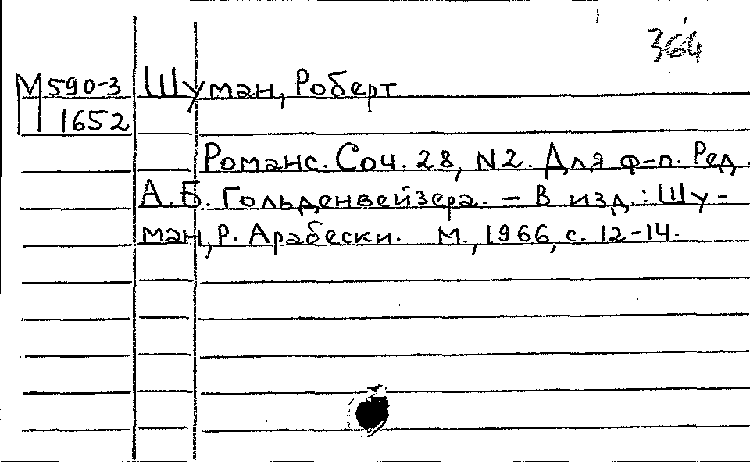 364
М590-3 Шуман, Роберт
1652
Романс. Соч. 28, N2. Для ф-п. Ред.
А.Б. Гольденвейзера. – В изд.: Шу-
ман, Р. Арабески. М., 1966, с. 12-14.